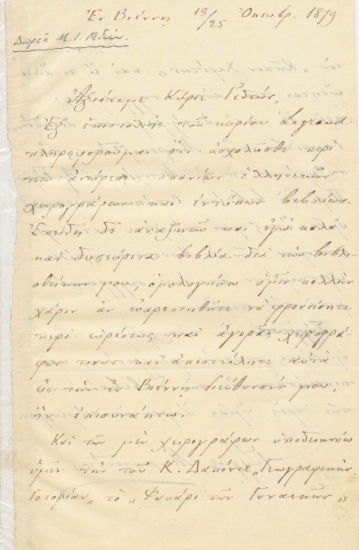 Ἐν Βιέννῃ 13/25 Ὀκτωβρ. 1879
Δωρεὰ Μ. Ι. Γεδεών.
Ἀξιότιμε Κύριε Γεδεών,
Ἐξ ἐπιστολῆς τοῦ κυρίου Legrand
πληροφοροῦμαι ὅτι ἀσχολεῖσθε περὶ
τὴν ἀνεύρεσιν σπανίων ἑλληνικῶν
χειρογράφων καὶ ἐντύπων βιβλίων.
Ἐπειδὴ δὲ ἀναζητῶ καὶ ἐγὼ καλὰ
καὶ δυσεύρετα βιβλία διὰ τὴν βιβλιο
θήκην μου, ὁμολογήσω ὑμῖν πολλὴν
χάριν ἂν εὐαρεστηθῆτε νὰ φροντίσητε
περὶ εὑρέσεως καὶ ἀγορᾶς χειρογρά
φων τινῶν καὶ ἀποστείλητε αὐτὰ
εἰς τὴν ἐν Βιέννῃ διεύθυνσίν μου,
ἣν ἐπισυνάπτω.
Καὶ τῶν μὲν χειρογράφων ὑποδεικνύω
ὑμῖν τὴν τοῦ Κ. Δαπόντε „Γεωγραφικὴν
Ἱστορίαν", τὸ „Φανάρι τῶν Γυναικῶν"